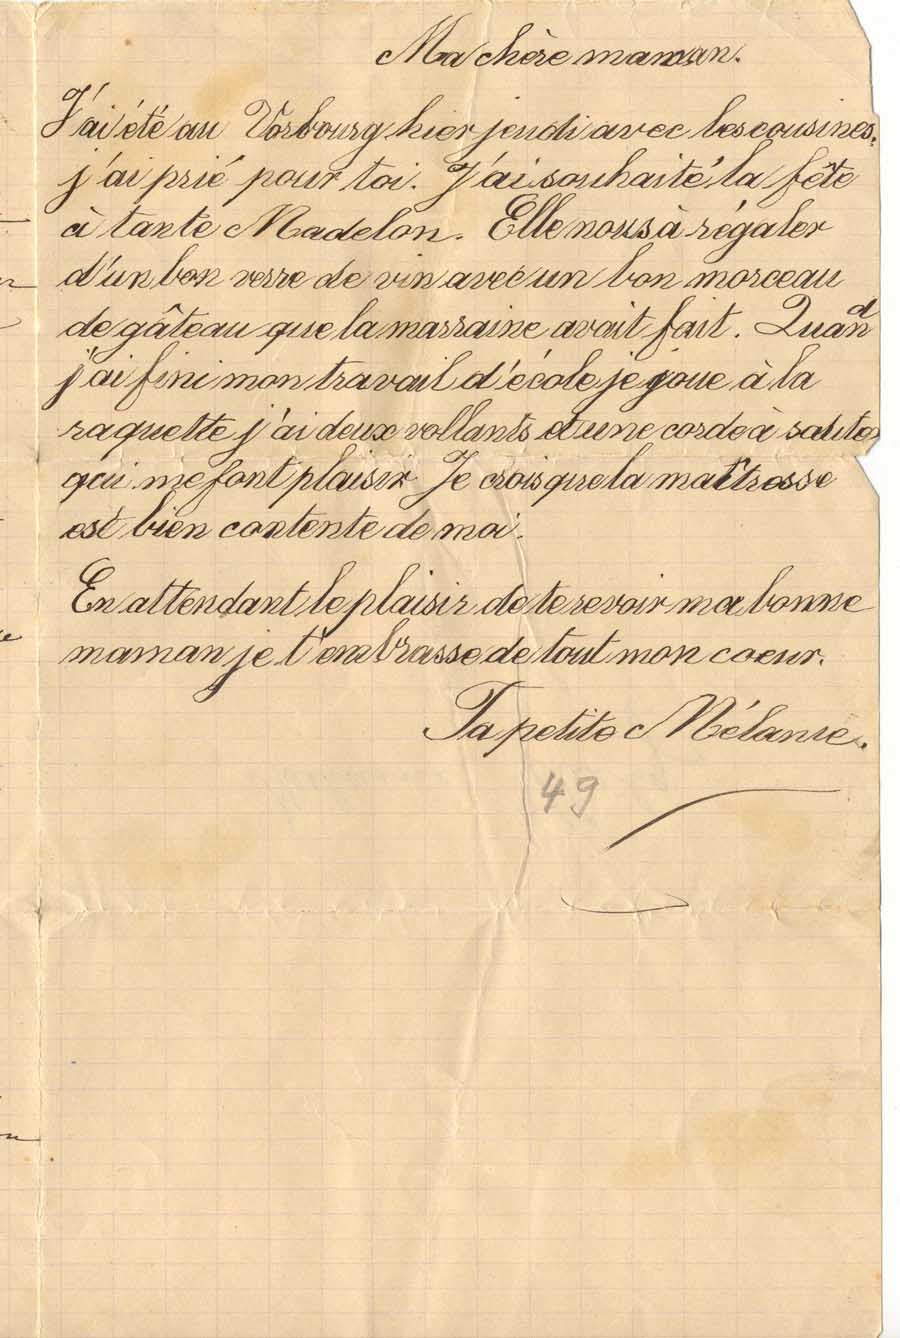 Ma chère maman.
J'ai été au Vorbourg hier jeudi avec les cousines,
j'ai prié pour toi. J'ai souhaité la fête
à tante Madelon. Elle nous à régaler
d'un bon verre de vin avec un bon morceau
de gâteau que la marraine avait fait. Quand
j'ai fini mon travail d'école je joue à la
raquette j'ai deux vollants et une corde à sauter
qui me font plaisir. Je crois que la maîtresse
est bien contente de moi.
En attendant le plaisir de te revoir ma bonne
maman je t'embrasse de tout mon coeur.
Ta petite Mélanie.
49